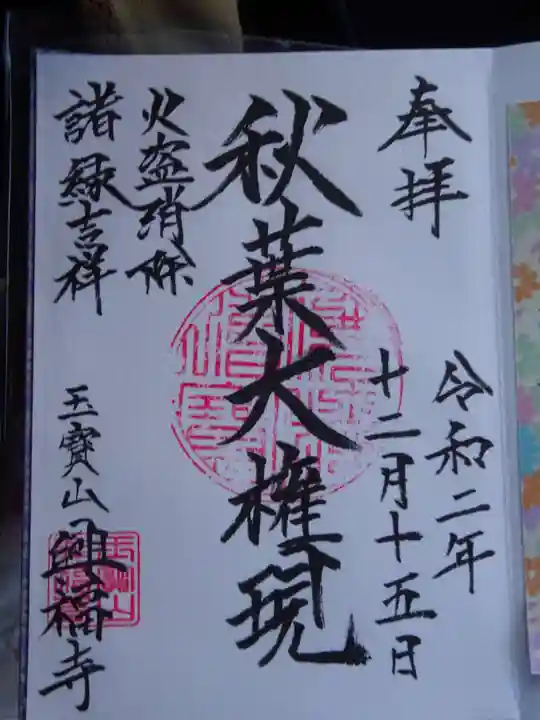 奉拝
令和二年
十二月十五日
秋葉大権現
火盗消除
諸縁吉祥
玉寶山
興福寺